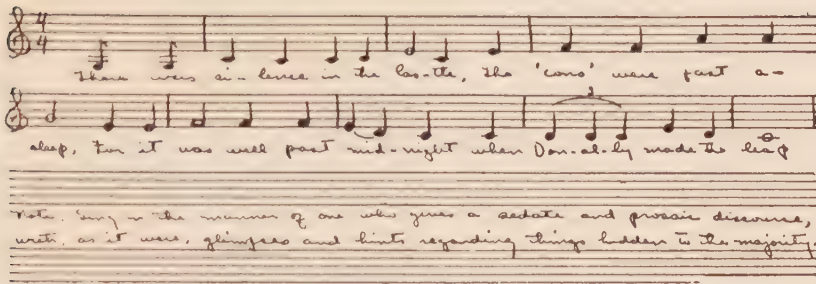 4
4
There was si-lence in the Cas-tle, The 'cons' were fast a-
3
sleep, For it was well past mid-night when Don-al-ly made the leap
Note. Sing in the manner of one who gives a sedate and prosaic discourse,
with, as it were, glimpses and hints regarding things hidden to the majority.